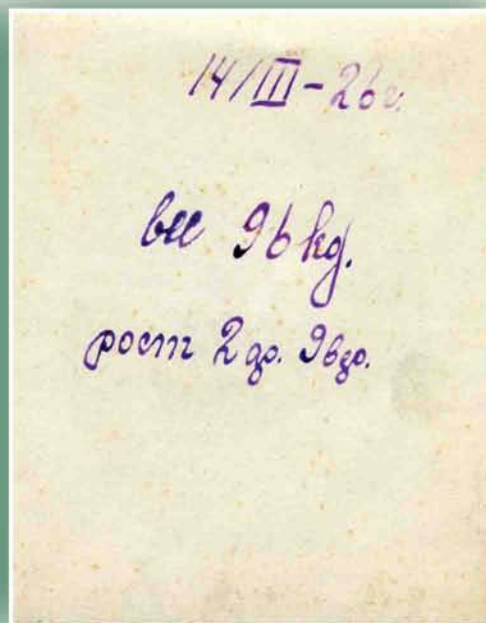 14/III-26г.
вес 96 kg.
рост 2 др. 96 др.